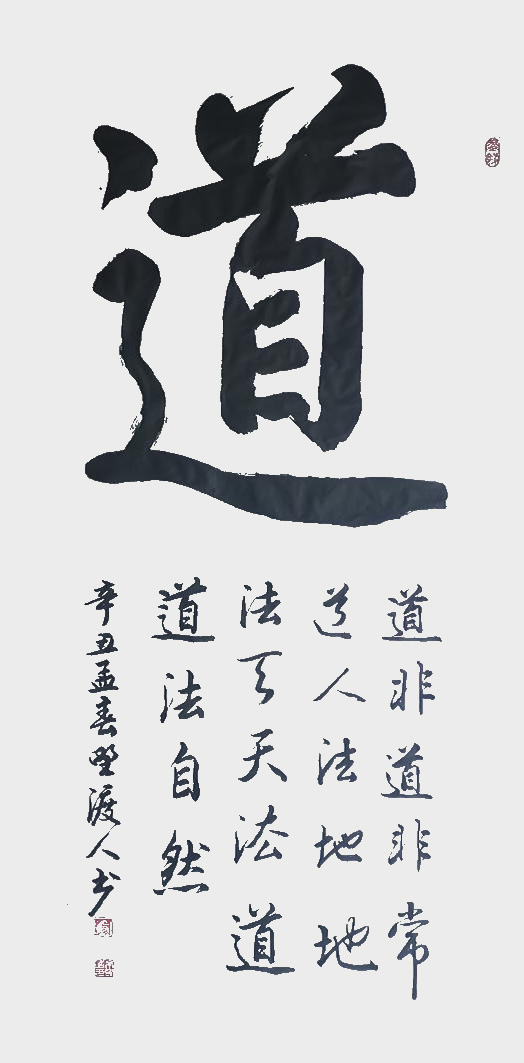 道
道非道非常
道人法地地
法天天法道
道法自然
辛丑孟春野渡人书